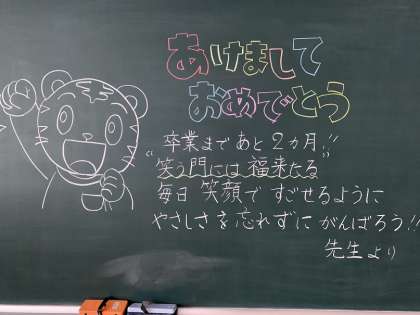 あけまして
おめでとう
卒業まであと2カ月!!
"笑う門には福来たる"
毎日笑顔ですごせるように
やさしさを忘れずにがんばろう!!
先生より